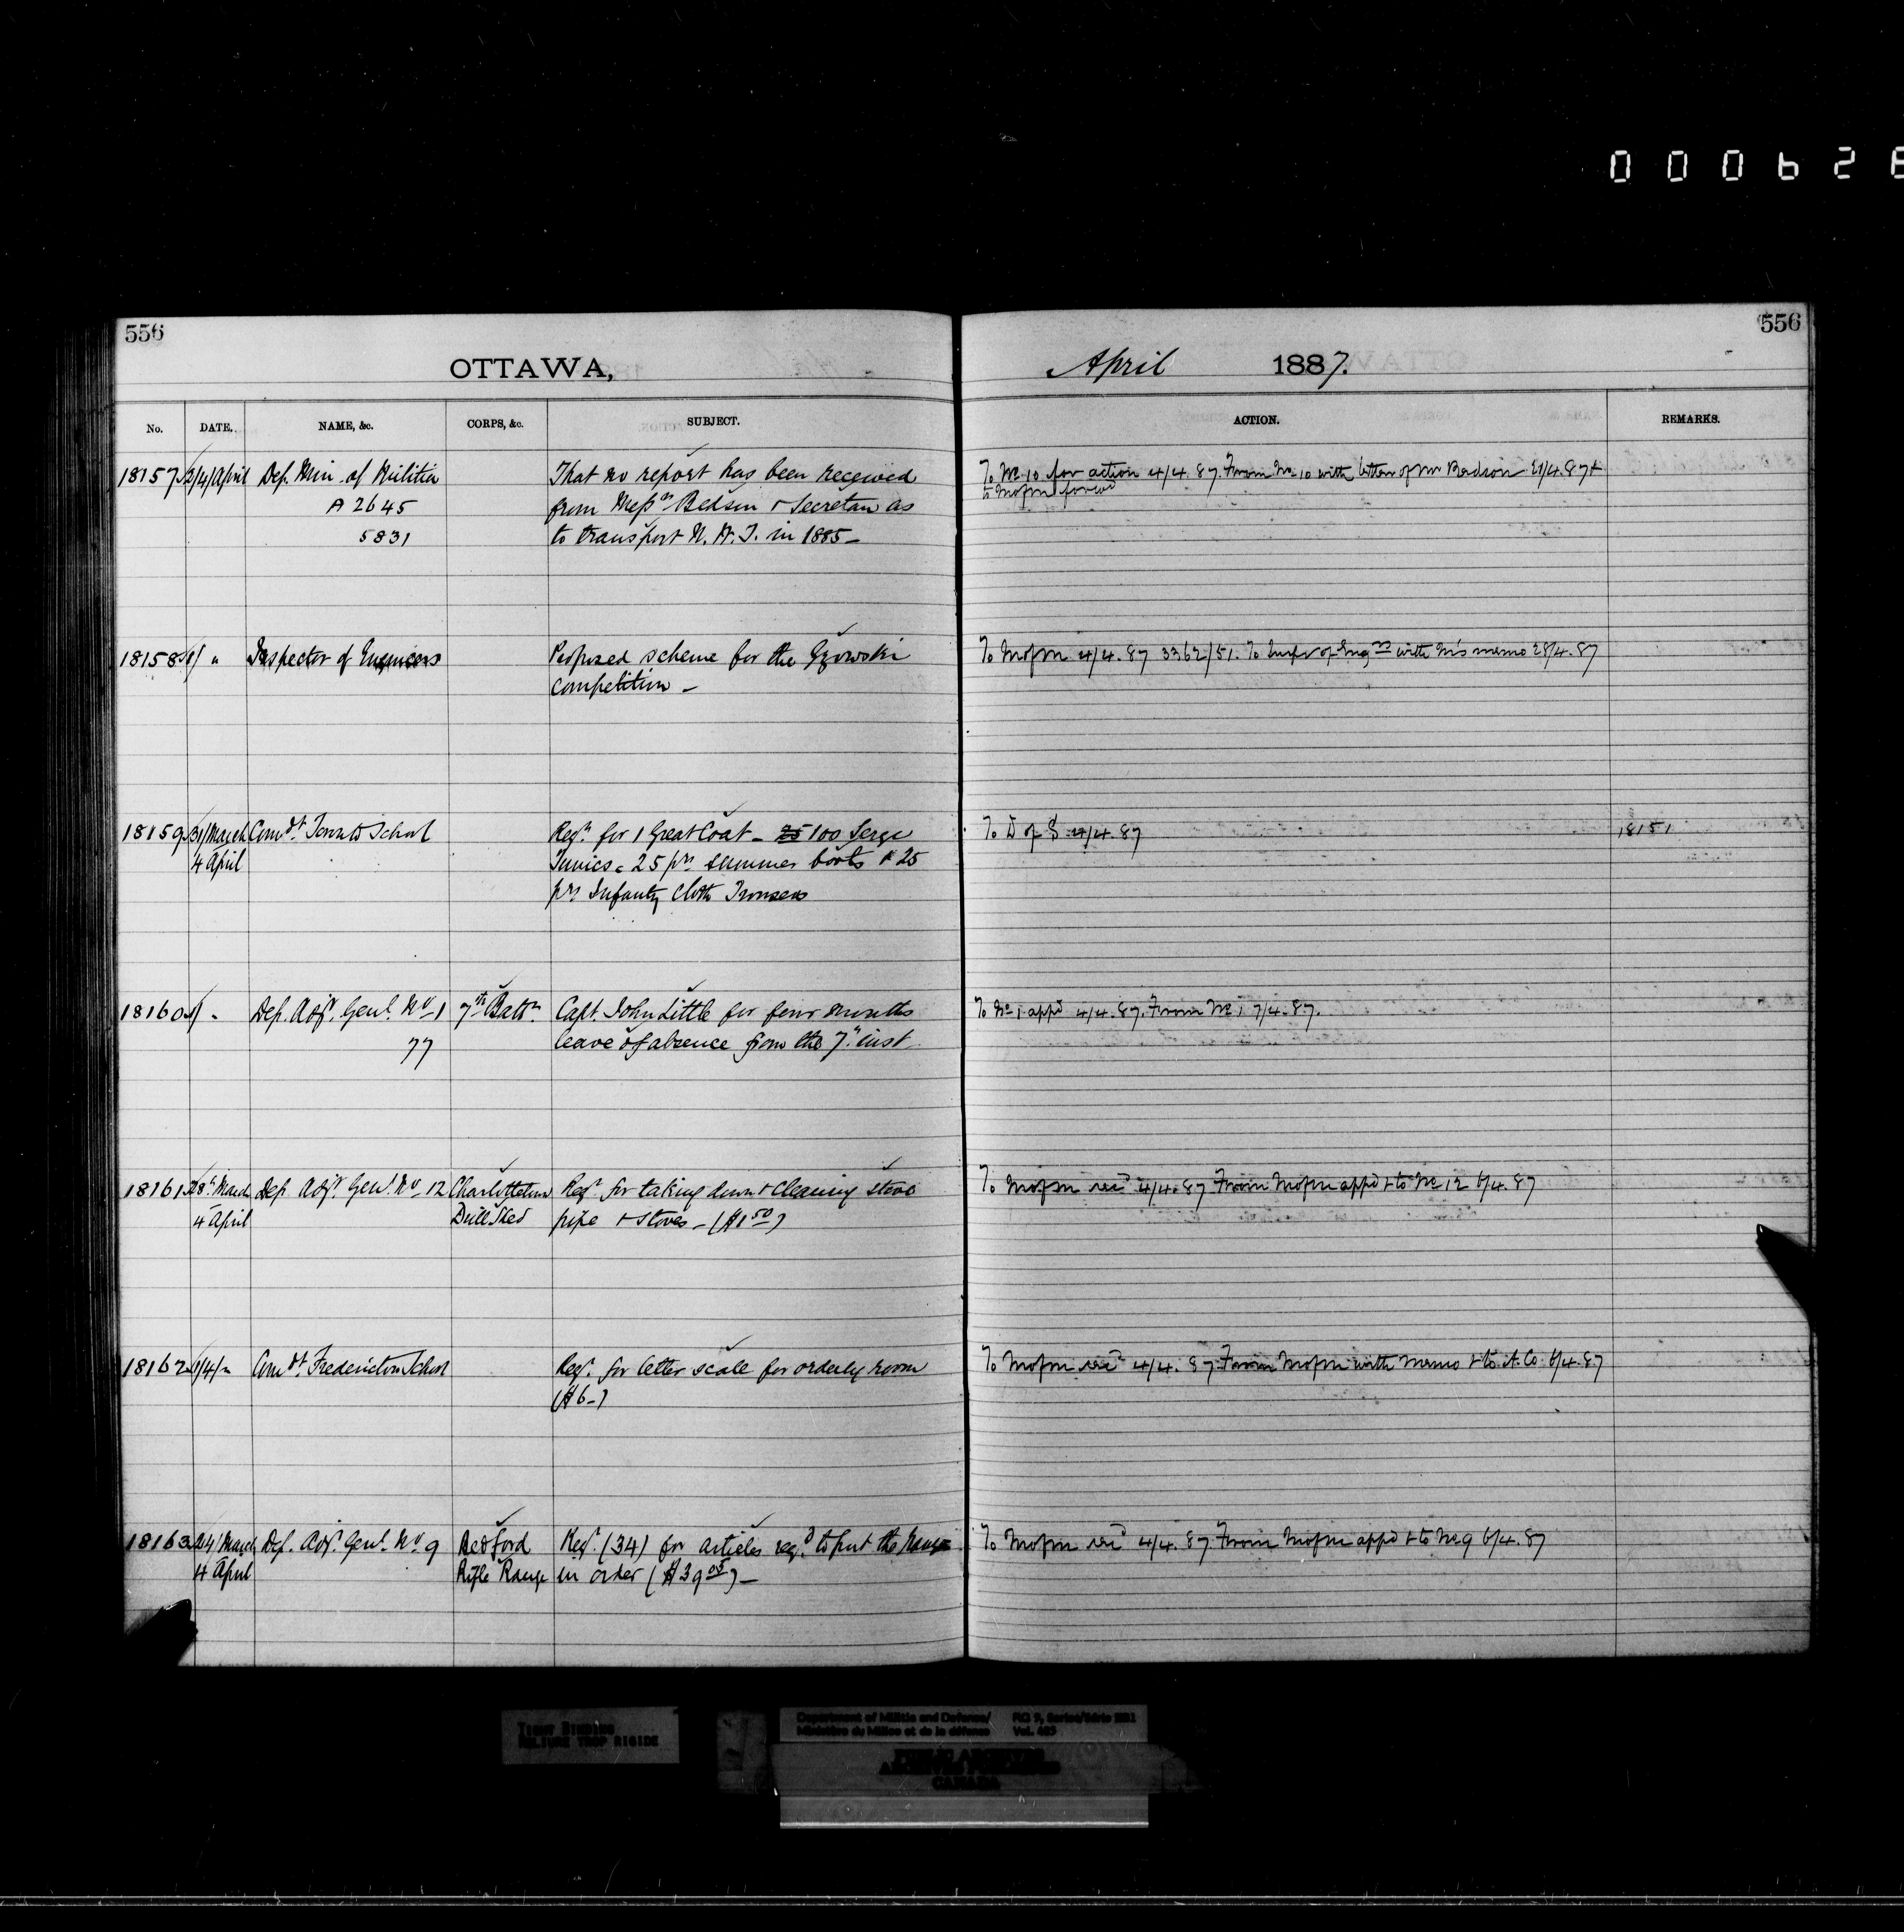 000628
556
556
OTTAWA,
April 1887.
No. DATE. NAME, &c. CORPS, &c. SUBJECT. ACTION. REMARKS.
18157 2/4/April Dep. Min. of Militia That no report has been received To No 10 for action 4/4.87. From No 10 with letter of Mr Bedson 21/4.87 +
A 2645 from Messrs Bedson & Secretan as to MofM forwd
5831 to transport N.W.T. in 1885 —
18158 1/ " Inspector of Engineers Proposed scheme for the Gzowski To MofM 4/4.87 3362/51. To Inspr of Engrs with M's memo 28/4.87
Competition —
18159 31/March Comdt Toronto School Reqn for 1 Great Coat — 25 100 Serge To D of S 4/4.87 18151
4 April Tunics - 25 prs summer boots & 25
prs Infantry Cloth Trousers
18160 1/ " Dep. Adjt. Genl. No 1 7th Battn. Capt. John Little for four months To No 1 appd 4/4.87. From No 1 7/4.87.
77 leave of absence from the 7th inst
18161 28th March Dep. Adjt. Genl. No 12 Charlottetown Reqn for taking down & Cleaning stove To MofM recd 4/4.87 From MofM appd & to No 12 6/4.87
4 April Drill Shed pipe & stoves — ($1 50)
18162 1/4/ " Comdt Fredericton School Reqn. for letter scale for orderly room To MofM recd 4/4.87 From MofM with memo & to A.Co 6/4.87
($6 —)
18163 24/March Dep. Adjt. Genl. No 9 Bedford Reqn. (34) for articles reqd to put the Range To MofM recd 4/4.87 From MofM appd & to No 9 6/4.87
4 April Rifle Range in order ($39 05) —
TIGHT BINDING
RELIURE TROP RIGIDE
Department of Militia and Defence/ RG 9, Series/Série IIB1
Ministère du Milice et de la défense Vol. 485
PUBLIC ARCHIVES
ARCHIVES PUBLIQUES
CANADA